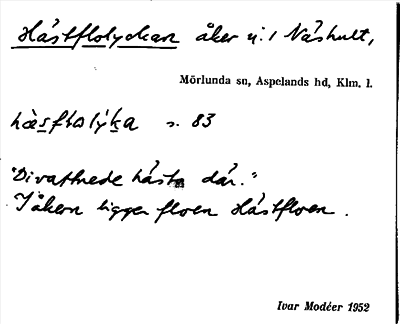 Hästflolyckan åker u. / Näshult,
Mörlunda sn, Aspelands hd, Klm. l.
hä̀sftalýka s. 83
"Di vattnede hästa där."
I åkern ligger floen Hästfloen.
Ivar Modéer 1952